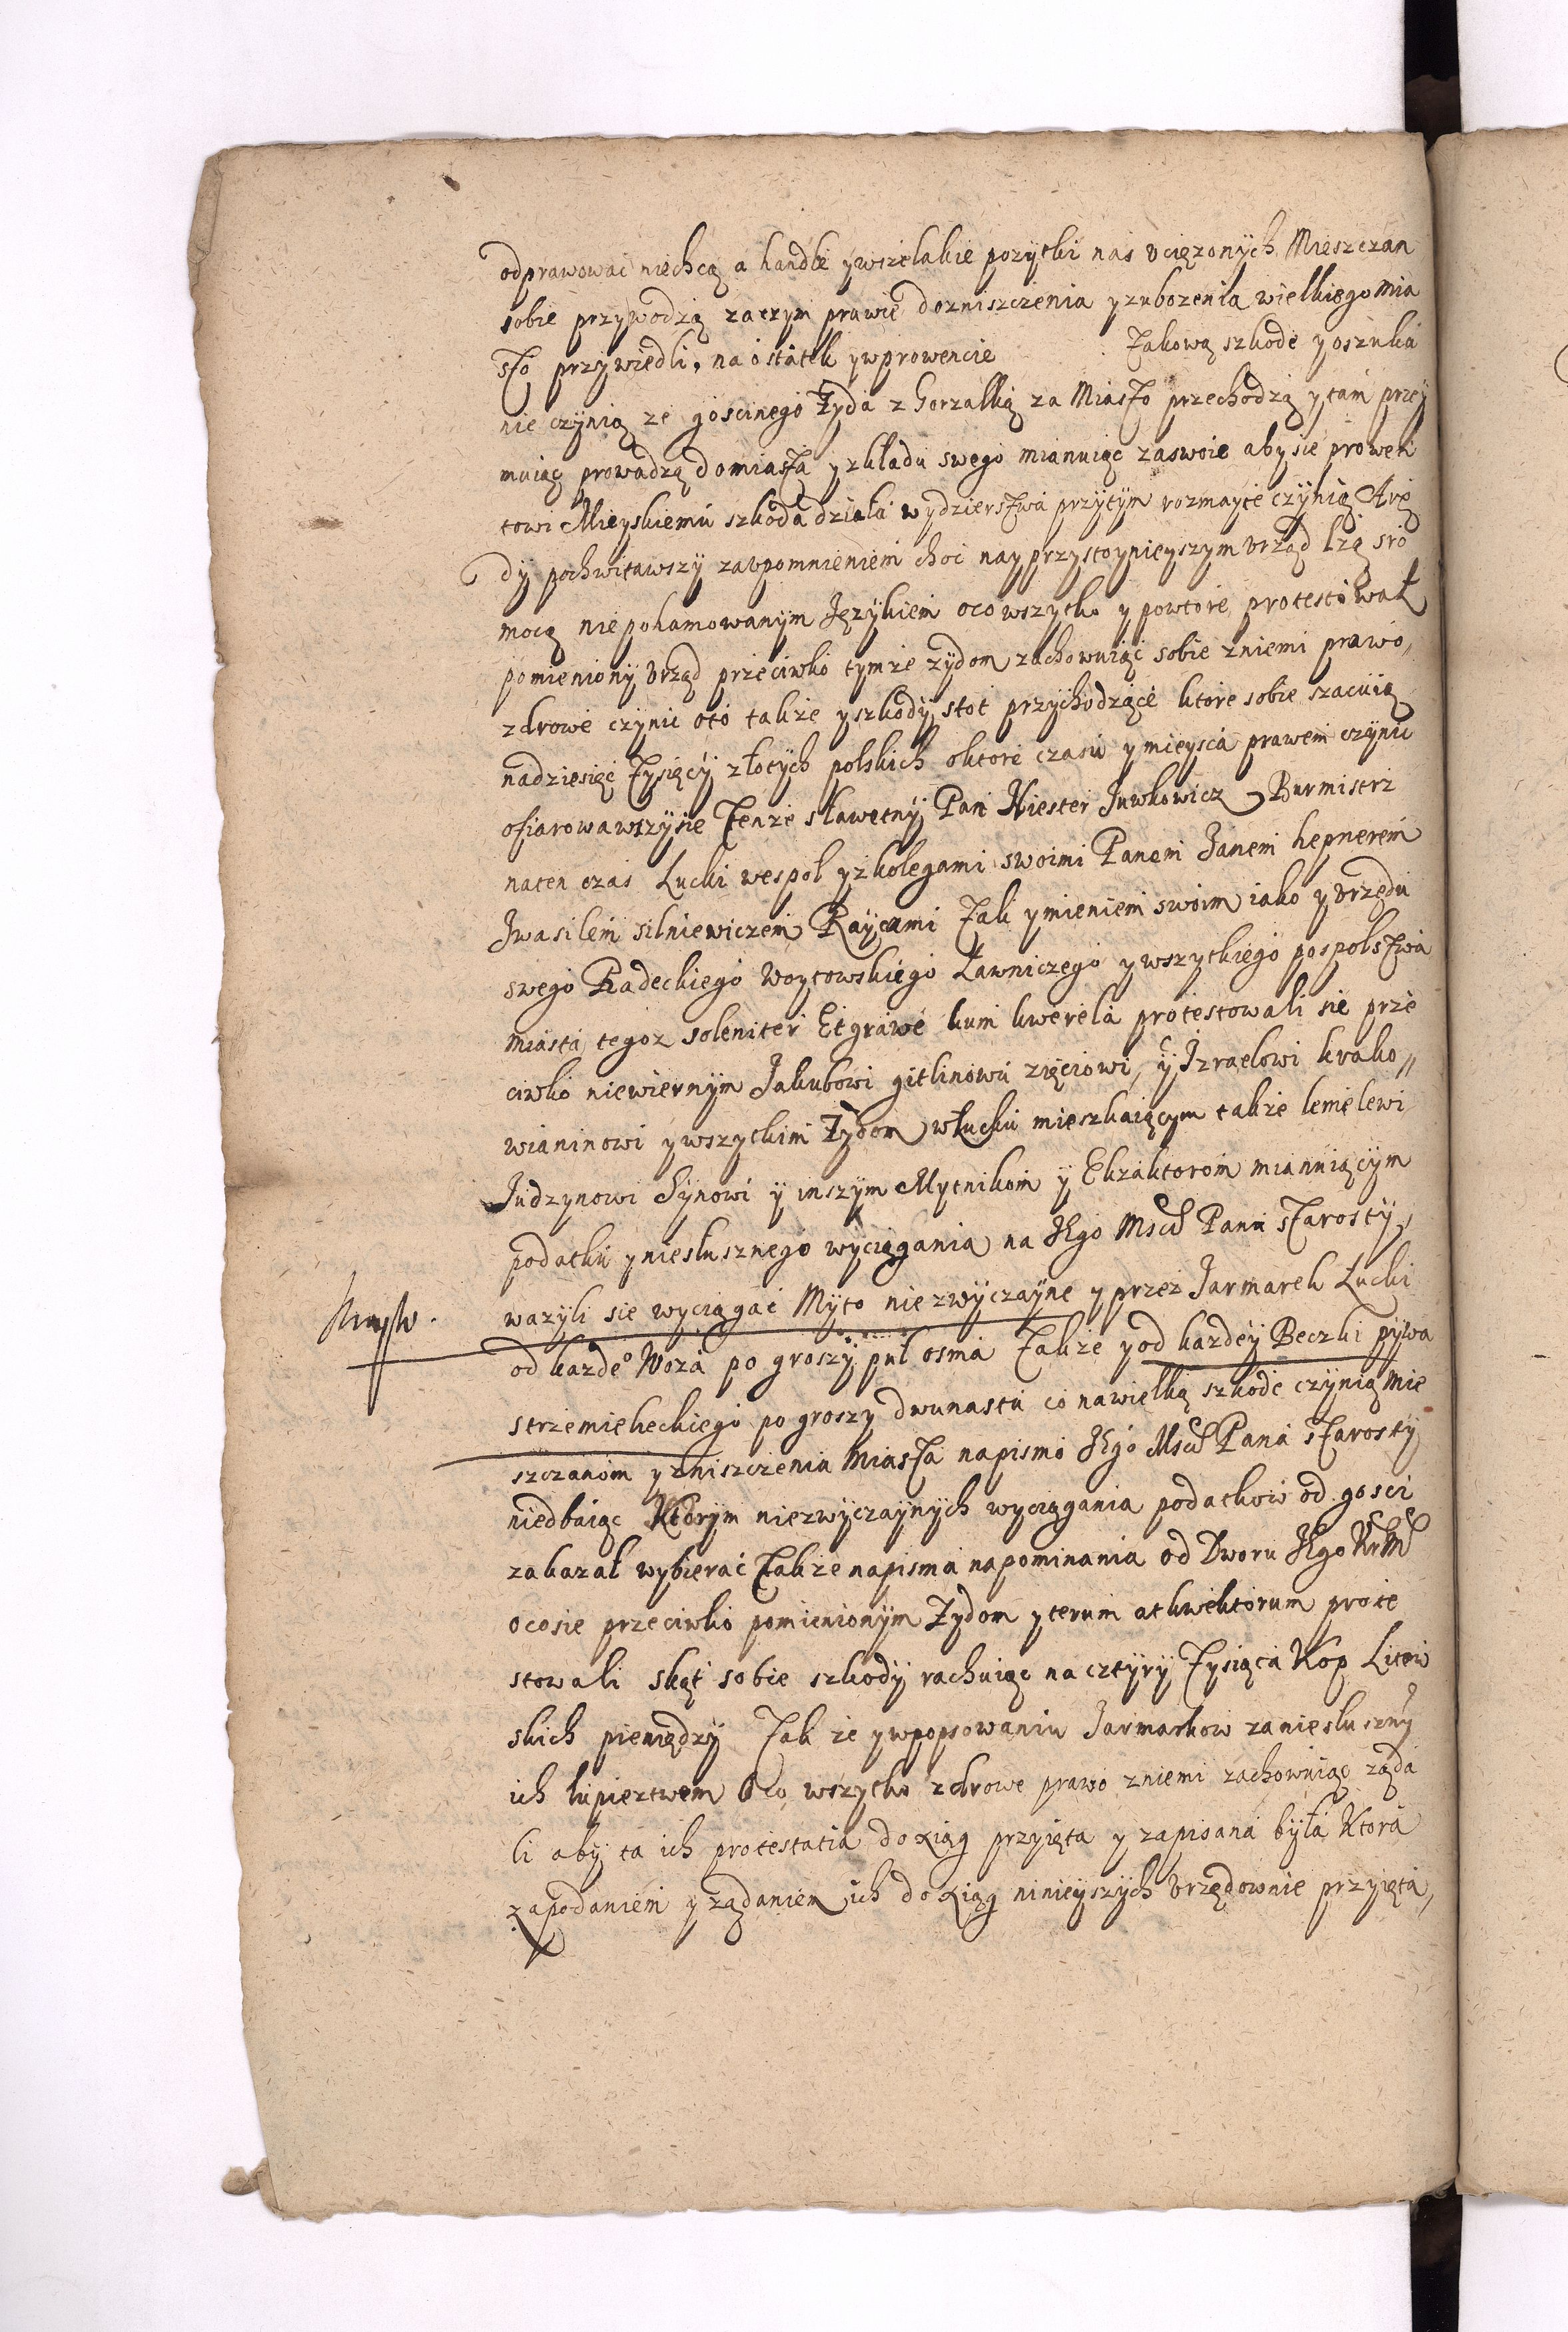 odprawowaċ niechcą a handle ywszelakie pozytki nas vcięzonych Mieszczan
sobie przywodzą zaczym prawie dozniszczenia yzubozenia wielkiego mia
sto przywiedli, na ostatek ywprowencie takową szkode yoszuka
nie czynią ze goscinego Żyda z Gorzałką za Miasto przechodzą ytam przey
muiąc prowadzą domiasta yzkładu swego mianuiąc zaswoie abysie prowen
towi Mieyskiemu szkoda działa wydzierstwa przytym rozmayte czynią Arę
dy pochwitawszy zavpomnieniem choc nayprzystoynieyszym vrząd lzą sro
mocą niepohamowanym Językiem ocowszytko ypowtore protestował
pomieniony vrząd przeciwko tymze zydom zachowuiąc sobie zniemi prawo,
zdrowe czynic oto takze yszkody stot przychodzące ktore sobie szacuią
nadziesięc tysięcy złotych polskich oktore czasu ymieysca prawem czynic
ofiarowawszysie tenze sławetny Pan Niester Juwkowicz Burmistrz
naten czas Lucki wespoł yzkolegami swoimi Panem Janem hepnerem
Jwasilem silniewiczem Raycami tak ymieniem swoim iako yvrzędu
swego Radeckiego woytowskiego Ławniczego ywszytkiego pospolstwa
miasta tegoz soleniter Etgrawe kum kwerela protestowali sie prze
ciwko niewiernym Jakubowi gitlinowu zięciowi, y Izraelowi krako„
wianinowi ywszytkim Żydom włucku mieszkaiącym takze lemelewi
Judzynowi Synowi y inszym Mytnikom y Ekzaktorom mianuiącym
podatku ynieslusznego wyciągania na Jego Msci Pana starosty,
wazyli sie wyciągać Myto niezwyczayne yprzez Jarmarek Lucki
od kazde° Woza po groszy puł osma takze yod kazdey Beczki pywa
strzemiekeckiego po groszy dwunastu co nawielką szkode czynią mie
szczanom yzniszczenia miasta napismo Jego Msci Pana starosty
niedbaiąc Ktorym niezwyczaynych wyciągania podatkow od gosci
zakazał wybierać takze napisma napominania od Dworu Jego KrM
ocosie przeciwko pomienionym Żydom yterum atkwektorum prote
stowali skąt sobie szkody rachuiąc na cztyry tysiąca Kop Litew
skich pieniędzy tak ze ywpopsowaniu Jarmarkow zaniesłuszny
ich łupieztwem Oco wszytko zdrowe prawo zniemi zachowuiąc ząda
li aby ta ich protestatia doxiąg przyięta y zapisana była Ktora
zapodaniem yządaniem ich doxiąg ninieyszych vrzędownie przyięta,